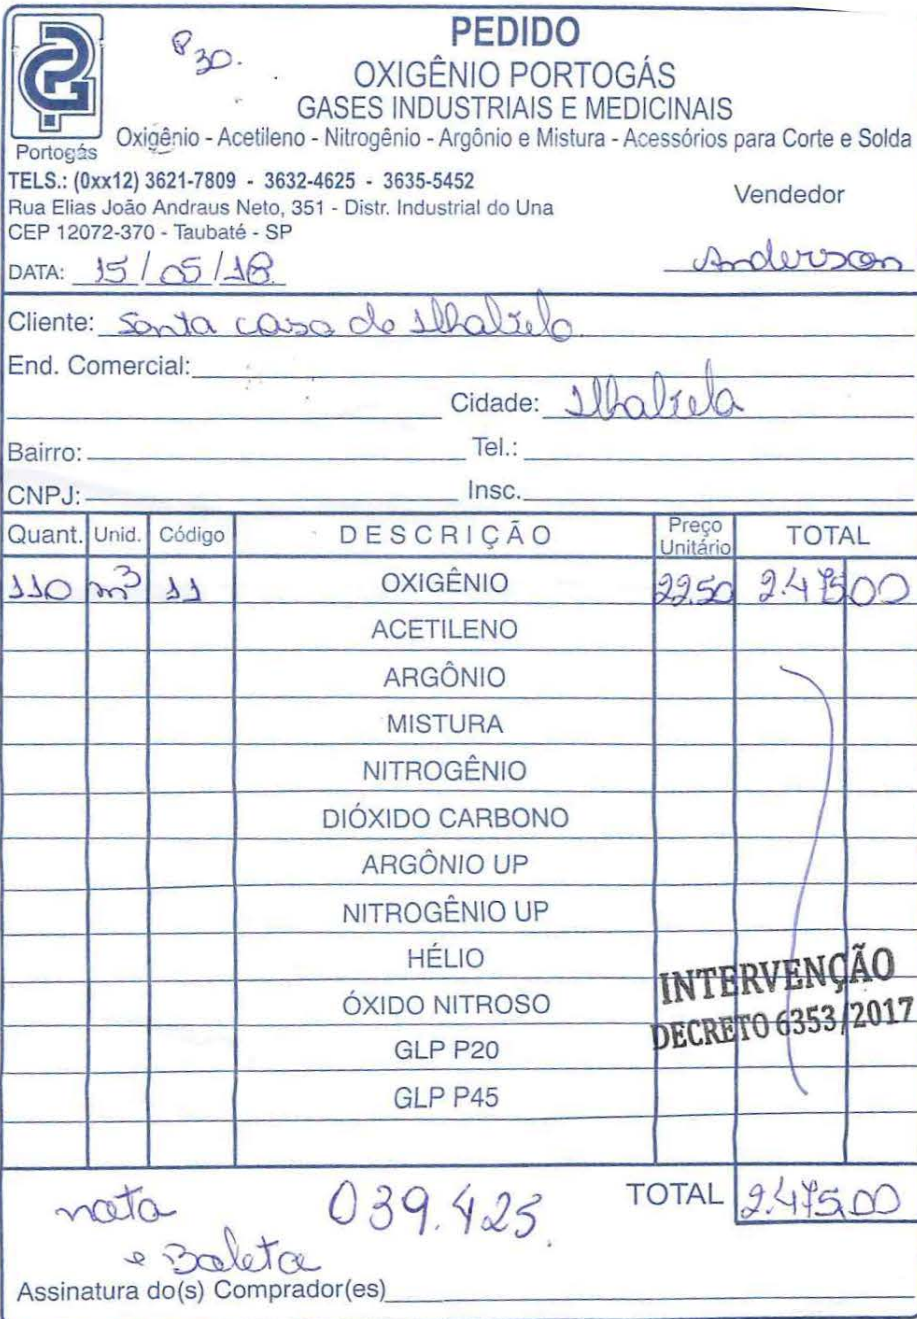 PEDIDO
P30.
OXIGÊNIO PORTOGÁS
GASES INDUSTRIAIS E MEDICINAIS
Oxigênio - Acetileno - Nitrogênio - Argônio e Mistura - Acessórios para Corte e Solda
Portogás
TELS.: (0xx12) 3621-7809 - 3632-4625 - 3635-5452
Rua Elias João Andraus Neto, 351 - Distr. Industrial do Una
CEP 12072-370 - Taubaté - SP
Vendedor
DATA: 15/05/18 Anderson
Cliente: Santa casa de Ilhabela
End. Comercial:
Cidade: Ilhabela
Bairro: Tel.:
CNPJ: Insc.
Quant. Unid. Código DESCRIÇÃO Preço Unitário TOTAL
110 m³ 11 OXIGÊNIO 22.50 2.475 00
ACETILENO
ARGÔNIO
MISTURA
NITROGÊNIO
DIÓXIDO CARBONO
ARGÔNIO UP
NITROGÊNIO UP
HÉLIO
ÓXIDO NITROSO
GLP P20
GLP P45
INTERVENÇÃO
DECRETO 6353/2017
nota 039.425 TOTAL 2.475,00
e Boleto
Assinatura do(s) Comprador(es)